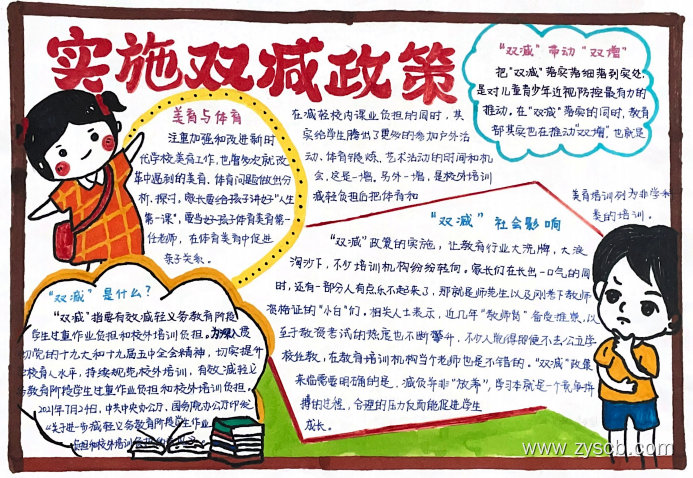 实施双减政策
美育与体育
注重加强和改进新时
代学校美育工作，也曾多次就改
革中遇到的美育、体育问题做出分
析、探讨。家长要给孩子讲好"人生
第一课"，要当好孩子体育美育第一
任老师，在体育美育中促进
亲子关系。
在减轻校内课业负担的同时，其
实给学生腾出了更多的参加户外活
动、体育锻炼、艺术活动的时间和机
会，这是一增，另外一增，是校外培训
减轻负担后把体育和
美育培训列为非学科
类的培训。
"双减"带动"双增"
把"双减"落实落细落到实处
是对儿童青少年近视防控最有力的
推动。在"双减"落实的同时，教育
部其实也在推动"双增"也就是
"双减"是什么？
"双减"指要有效减轻义务教育阶段
学生过重作业负担和校外培训负担。为深入贯
彻党的十九大和十九届五中全会精神，切实提升
学校育人水平，持续规范校外培训，有效减轻义
务教育阶段学生过重作业负担和校外培训负担。
2021年7月24日，中共中央办公厅、国务院办公厅印发
《关于进一步减轻义务教育阶段学生作业
负担和校外培训负担的意见》
"双减"社会影响
"双减"政策的实施，让教育行业大洗牌，大浪
淘沙下，不少培训机构纷纷转向。家长们在长出一口气的同
时，还有一部分人有点乐不起来了，那就是师范生以及刚考下教师
资格证的"小白"们，相关人士表示，近几年"教师岗"备受推崇，以
至于教资考试的热度也不断攀升，不少人觉得即便不去公立学
校任教，在教育培训机构当个老师也是不错的。"双减"政策
来临需要明确的是，减负并非"放养"，学习本就是一个竞争拼
搏的过程，合理的压力反而能促进学生
成长。
www.zyscb.com